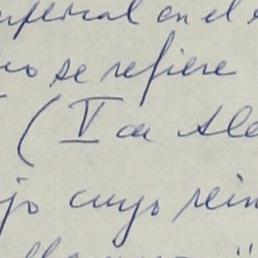 imperial en el
no se refiere
(V de Ale
jo cuyo rein